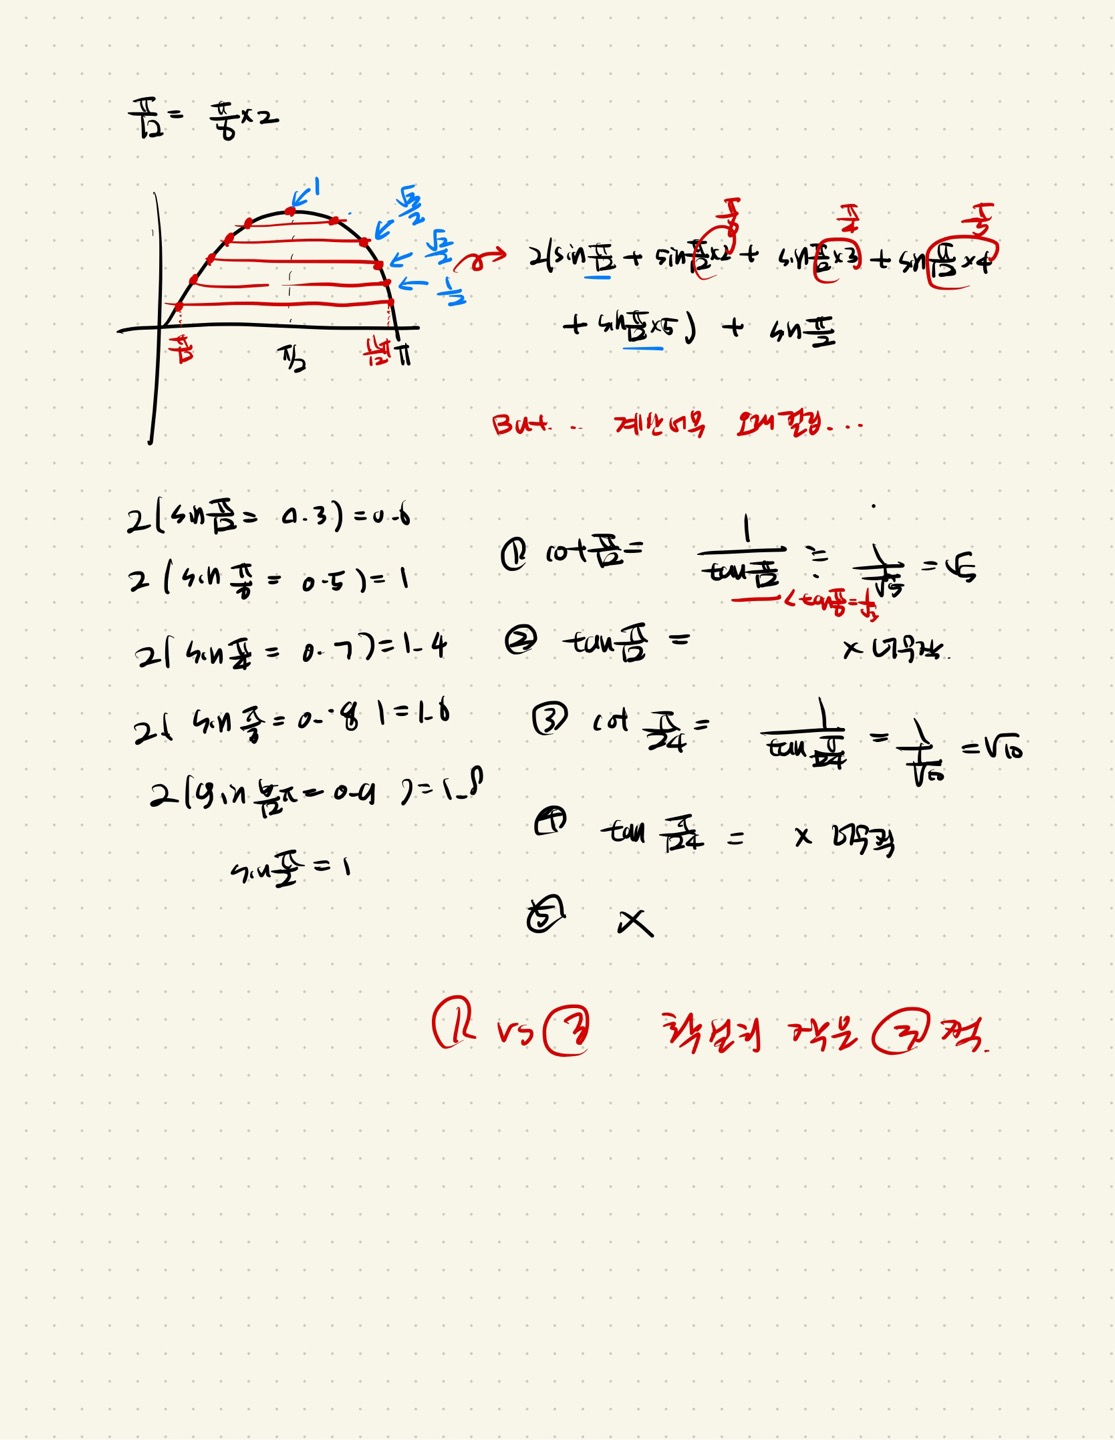 π/12 = π/6 × 2
1
√3/2
√2/2
1/2
π/12
π/2
11/12 π
π
π/6 π/4 π/3
2(sin π/12 + sin π/12 ×2 + sin π/12 ×3 + sin π/12 ×4
+ sin π/12 ×5) + sin π/2
But... 계산 너무 오래 걸림...
2(sin π/12 = 0.3) = 0.6
2(sin π/6 = 0.5) = 1
2(sin π/4 = 0.7) = 1.4
2( sin π/3 = 0.8 ) = 1.6
2(sin 5/12 π = 0.9 ) = 1.8
sin π/2 = 1
① cot π/12 = 1/(tan π/12) ≒ 1/(1/√5) = √5
< tan π/6 = 1/√3
② tan π/12 = × 너무 작.
③ cot π/24 = 1/(tan π/24) = 1/(1/√10) = √10
④ tan π/24 = × 너무 작
⑤ ×
① vs ③ ③ 픽.